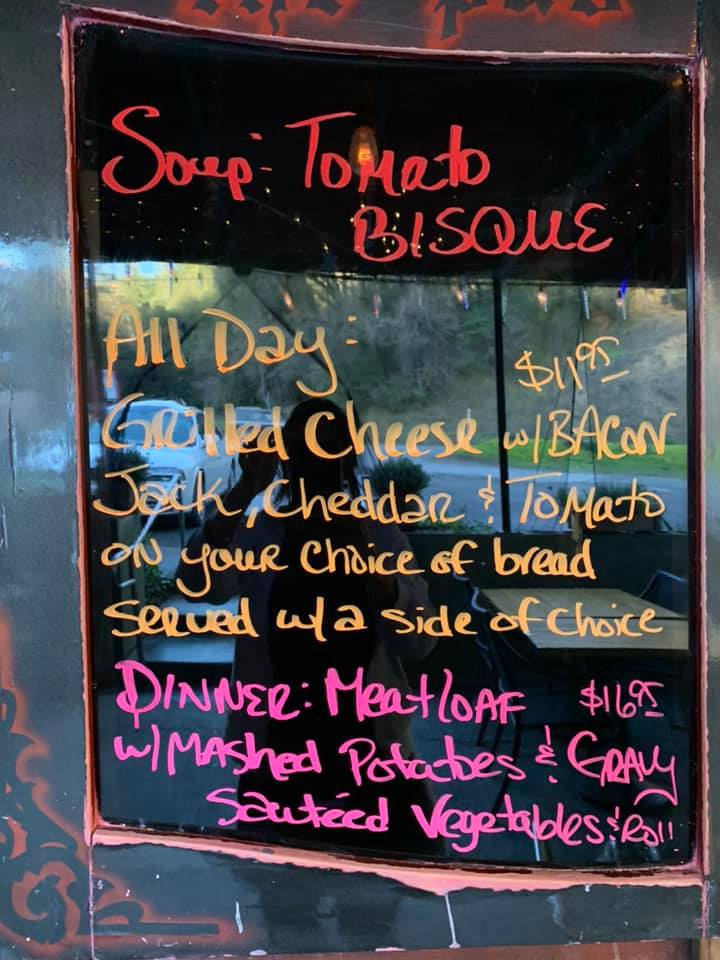 Soup: Tomato
BISQUE
All Day:
$11.95
Grilled Cheese w/BACON
Jack, Cheddar & Tomato
on your choice of bread
served w/ a side of choice
DINNER: Meatloaf $16.95
w/ MAShed Potatoes & GRAVY
Sautéed Vegetables & Roll